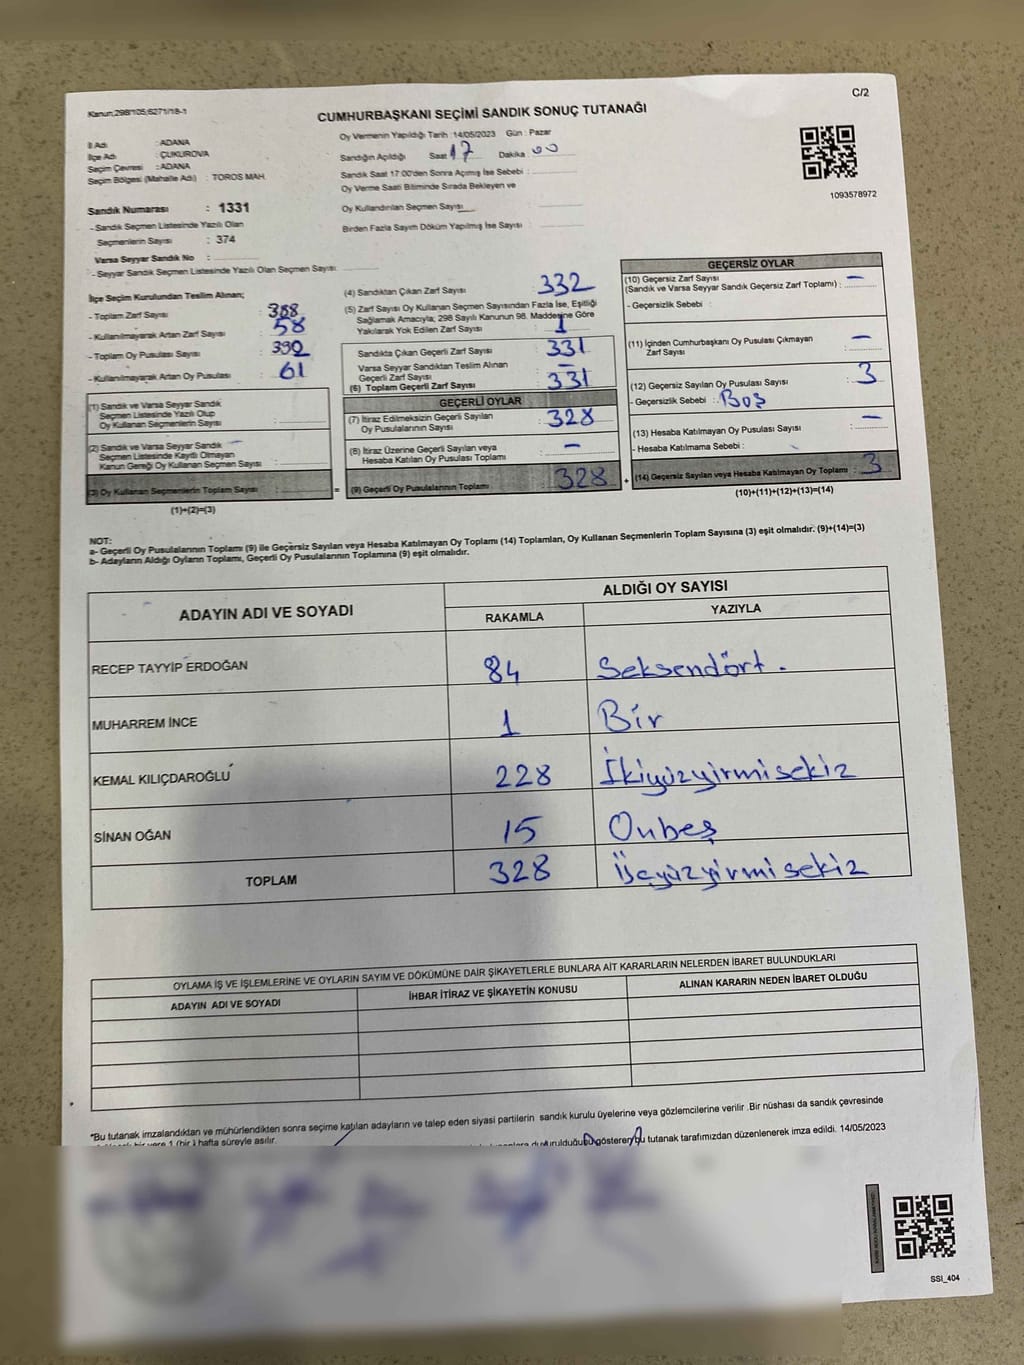 Kanun;298/105;6271/18-1
C/2
CUMHURBAŞKANI SEÇİMİ SANDIK SONUÇ TUTANAĞI
İl Adı : ADANA
İlçe Adı : ÇUKUROVA
Seçim Çevresi : ADANA
Seçim Bölgesi (Mahalle Adı) : TOROS MAH.
Sandık Numarası : 1331
- Sandık Seçmen Listesinde Yazılı Olan
Seçmenlerin Sayısı : 374
Varsa Seyyar Sandık No :
- Seyyar Sandık Seçmen Listesinde Yazılı Olan Seçmen Sayısı
Oy Vermenin Yapıldığı Tarih : 14/05/2023 Gün : Pazar
Sandığın Açıldığı Saat 17 Dakika 00
Sandık Saat 17:00'den Sonra Açımış İse Sebebi :
Oy Verme Saati Bitiminde Sırada Bekleyen ve
Oy Kullandırılan Seçmen Sayısı
Birden Fazla Sayım Döküm Yapılmış İse Sayısı
1093578972
İlçe Seçim Kurulundan Teslim Alınan;
- Toplam Zarf Sayısı : 388
- Kullanılmayarak Artan Zarf Sayısı : 58
- Toplam Oy Pusulası Sayısı : 392
- Kullanılmayarak Artan Oy Pusulası : 61
(1) Sandık ve Varsa Seyyar Sandık
Seçmen Listesinde Yazılı Olup
Oy Kullanan Seçmenlerin Sayısı :
(2) Sandık ve Varsa Seyyar Sandık
Seçmen Listesinde Kayıtlı Olmayan
Kanun Gereği Oy Kullanan Seçmen Sayısı :
(3) Oy Kullanan Seçmenlerin Toplam Sayısı :
(1)+(2)=(3)
(4) Sandıktan Çıkan Zarf Sayısı : 332
(5) Zarf Sayısı Oy Kullanan Seçmen Sayısından Fazla İse, Eşitliği
Sağlamak Amacıyla; 298 Sayılı Kanunun 98. Maddesine Göre
Yakılarak Yok Edilen Zarf Sayısı : 1
Sandıkta Çıkan Geçerli Zarf Sayısı : 331
Varsa Seyyar Sandıktan Teslim Alınan
Geçerli Zarf Sayısı : –
(6) Toplam Geçerli Zarf Sayısı : 331
GEÇERLİ OYLAR
(7) İtiraz Edilmeksizin Geçerli Sayılan
Oy Pusulalarının Sayısı : 328
(8) İtiraz Üzerine Geçerli Sayılan veya
Hesaba Katılan Oy Pusulası Toplamı : –
= (9) Geçerli Oy Pusulalarının Toplamı : 328
GEÇERSİZ OYLAR
(10) Geçersiz Zarf Sayısı –
(Sandık ve Varsa Seyyar Sandık Geçersiz Zarf Toplamı) :
- Geçersizlik Sebebi :
(11) İçinden Cumhurbaşkanı Oy Pusulası Çıkmayan –
Zarf Sayısı :
(12) Geçersiz Sayılan Oy Pusulası Sayısı : 3
- Geçersizlik Sebebi : Boş
(13) Hesaba Katılmayan Oy Pusulası Sayısı : –
- Hesaba Katılmama Sebebi :
+ (14) Geçersiz Sayılan veya Hesaba Katılmayan Oy Toplamı : 3
(10)+(11)+(12)+(13)=(14)
NOT:
a- Geçerli Oy Pusulalarının Toplamı (9) ile Geçersiz Sayılan veya Hesaba Katılmayan Oy Toplamı (14) Toplamları, Oy Kullanan Seçmenlerin Toplam Sayısına (3) eşit olmalıdır. (9)+(14)=(3)
b- Adayların Aldığı Oyların Toplamı, Geçerli Oy Pusulalarının Toplamına (9) eşit olmalıdır.
ADAYIN ADI VE SOYADI
ALDIĞI OY SAYISI
RAKAMLA YAZIYLA
RECEP TAYYİP ERDOĞAN 84 Seksendört.
MUHARREM İNCE 1 Bir
KEMAL KILIÇDAROĞLU 228 İkiyüzyirmisekiz
SİNAN OĞAN 15 Onbeş
TOPLAM 328 üçyüzyirmisekiz
OYLAMA İŞ VE İŞLEMLERİNE VE OYLARIN SAYIM VE DÖKÜMÜNE DAİR ŞİKAYETLERLE BUNLARA AİT KARARLARIN NELERDEN İBARET BULUNDUKLARI
ADAYIN ADI VE SOYADI İHBAR İTİRAZ VE ŞİKAYETİN KONUSU ALINAN KARARIN NEDEN İBARET OLDUĞU
*Bu tutanak imzalandıktan ve mühürlendikten sonra seçime katılan adayların ve talep eden siyasi partilerin sandık kurulu üyelerine veya gözlemcilerine verilir .Bir nüshası da sandık çevresinde
yere 1 (bir) hafta süreyle asılır.
gösteren bu tutanak tarafımızdan düzenlenerek imza edildi. 14/05/2023
SSI_404